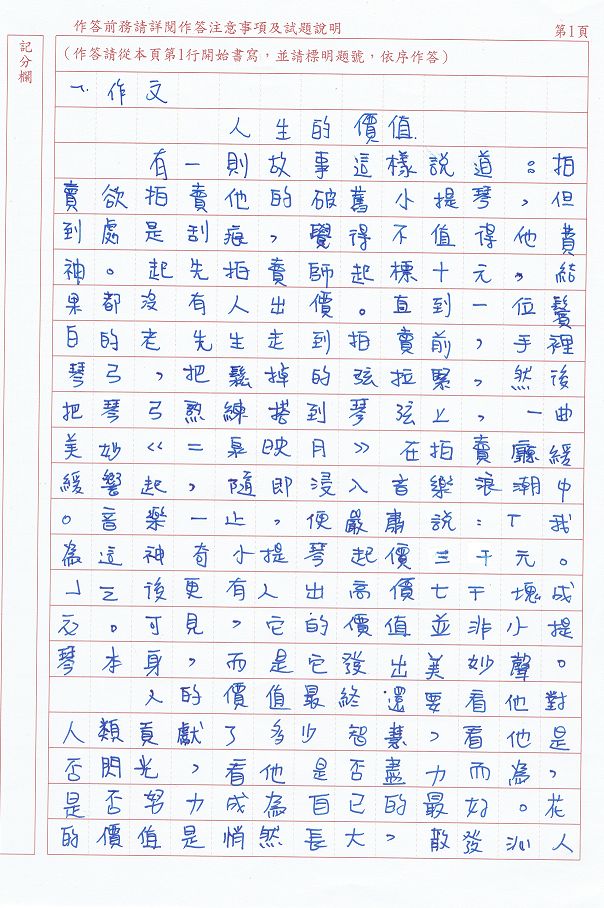 作答前務請詳閱作答注意事項及試題說明
第1頁
記分欄
（作答請從本頁第1行開始書寫，並請標明題號，依序作答）
一、作文
人生的價值
有一則故事這樣說道：拍
賣欲拍賣他的破舊小提琴，但
到處是刮痕，覺得不值得他費
神。起先拍賣師起標十元，結
果都沒有人出價。直到一位鬢
白的老先生走到拍賣前，手裡
琴弓，把鬆掉的弦拉緊，然後
把琴弓熟練搭到琴弦上，一曲
美妙《二泉映月》在拍賣廳緩
緩響起，隨即浸入音樂浪潮中
。音樂一止，便嚴肅說：「我
為這神奇小提琴起價三千元。
」之後更有人出高價七千塊成
交。可見，它的價值並非小提
琴本身，而是它發出美妙聲。
人的價值最終還要看他對
人類貢獻了多少智慧，看他是
否閃光，看他是否盡力而為，
是否努力成為自已的最好。花
的價值是悄然長大，散發沁人